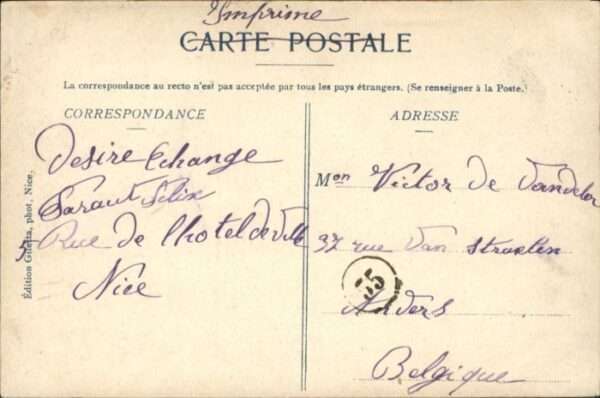 Imprime
CARTE POSTALE
La correspondance au recto n'est pas acceptée par tous les pays étrangers. (Se renseigner à la Poste.)
CORRESPONDANCE
Desire Echange
Faraut Félix
5 Rue de l'hotel de Ville
Nice
Édition Giletta, phot. Nice.
ADRESSE
Mon Victor de Vandeler
37 rue Van Straelen
35
Anvers
Belgique